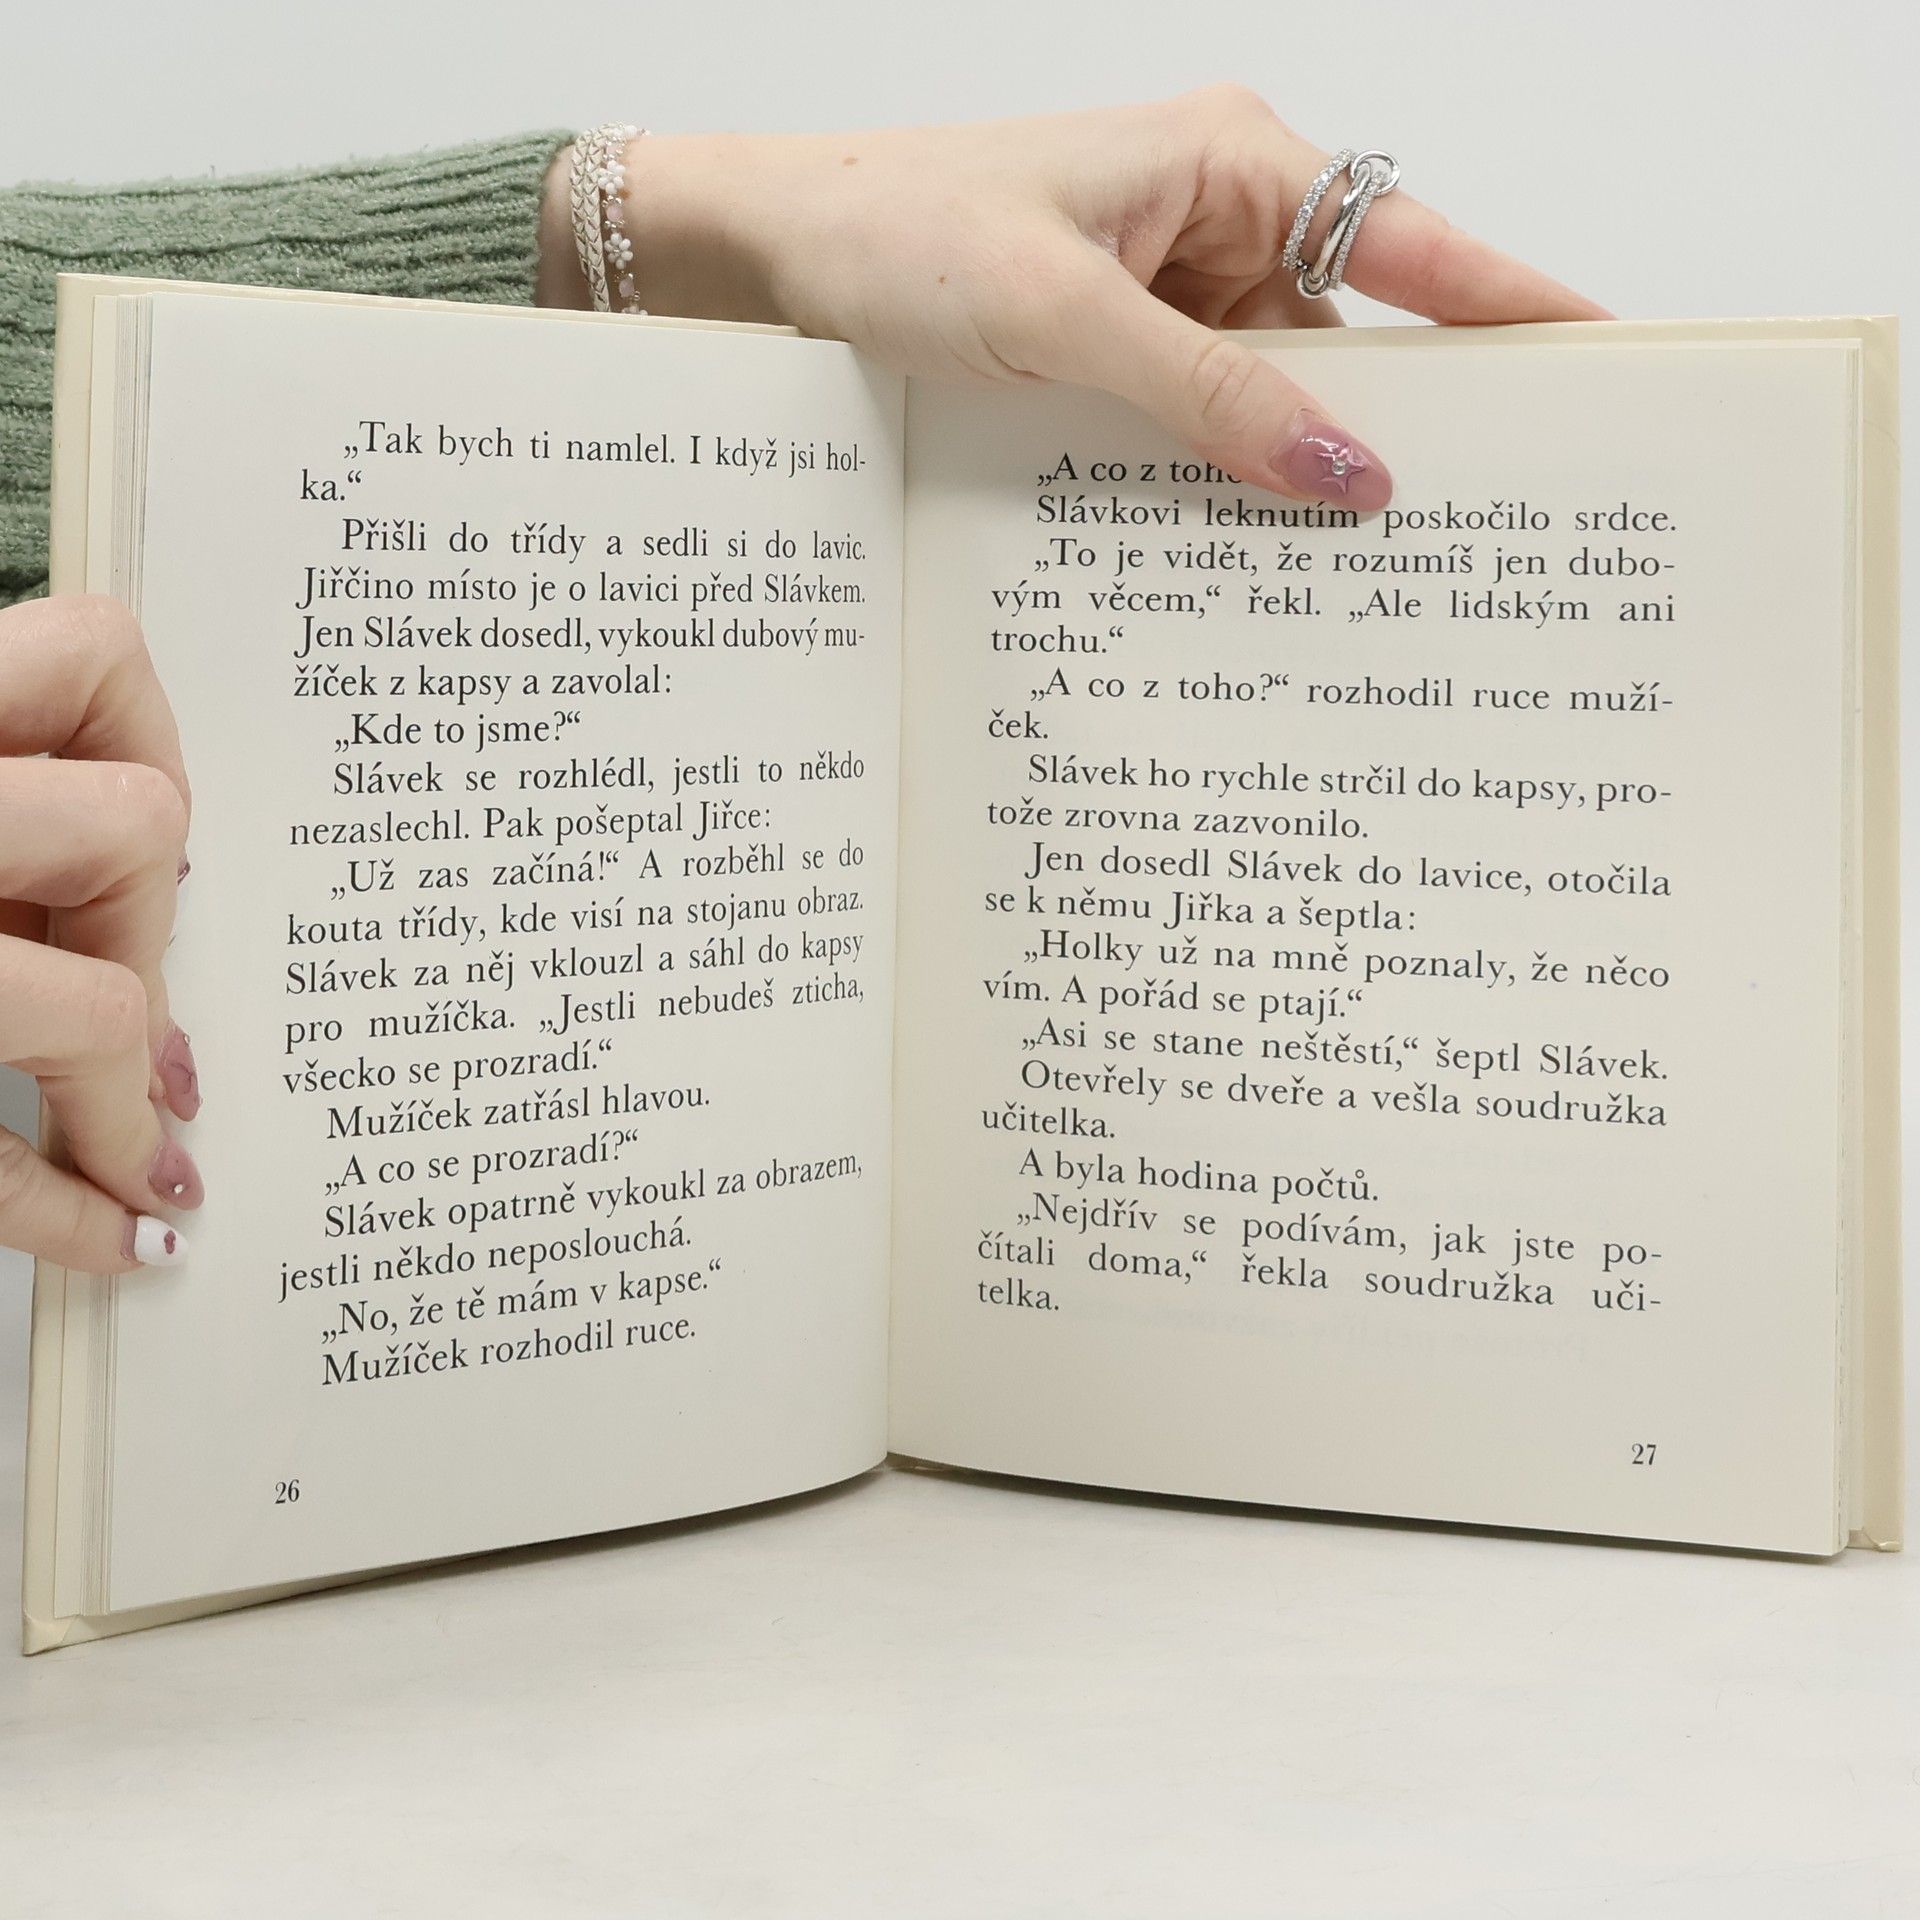 „Tak bych ti namlel. I když jsi hol-
ka.“
Přišli do třídy a sedli si do lavic.
Jiřčino místo je o lavici před Slávkem.
Jen Slávek dosedl, vykoukl dubový mu-
žíček z kapsy a zavolal:
„Kde to jsme?“
Slávek se rozhlédl, jestli to někdo
nezaslechl. Pak pošeptal Jiřce:
„Už zas začíná!“ A rozběhl se do
kouta třídy, kde visí na stojanu obraz.
Slávek za něj vklouzl a sáhl do kapsy
pro mužíčka. „Jestli nebudeš zticha,
všecko se prozradí.“
Mužíček zatřásl hlavou.
„A co se prozradí?“
Slávek opatrně vykoukl za obrazem,
jestli někdo neposlouchá.
„No, že tě mám v kapse.“
Mužíček rozhodil ruce.
26
„A co z
Slávkovi leknutím poskočilo srdce.
„To je vidět, že rozumíš jen dubo-
vým věcem,“ řekl. „Ale lidským ani
trochu.“
„A co z toho?“ rozhodil ruce muží-
ček.
Slávek ho rychle strčil do kapsy, pro-
tože zrovna zazvonilo.
Jen dosedl Slávek do lavice, otočila
se k němu Jiřka a šeptla:
„Holky už na mně poznaly, že něco
vím. A pořád se ptají.“
„Asi se stane neštěstí,“ šeptl Slávek.
Otevřely se dveře a vešla soudružka
učitelka.
A byla hodina počtů.
„Nejdřív se podívám, jak jste po-
čítali doma,“ řekla soudružka uči-
telka.
27